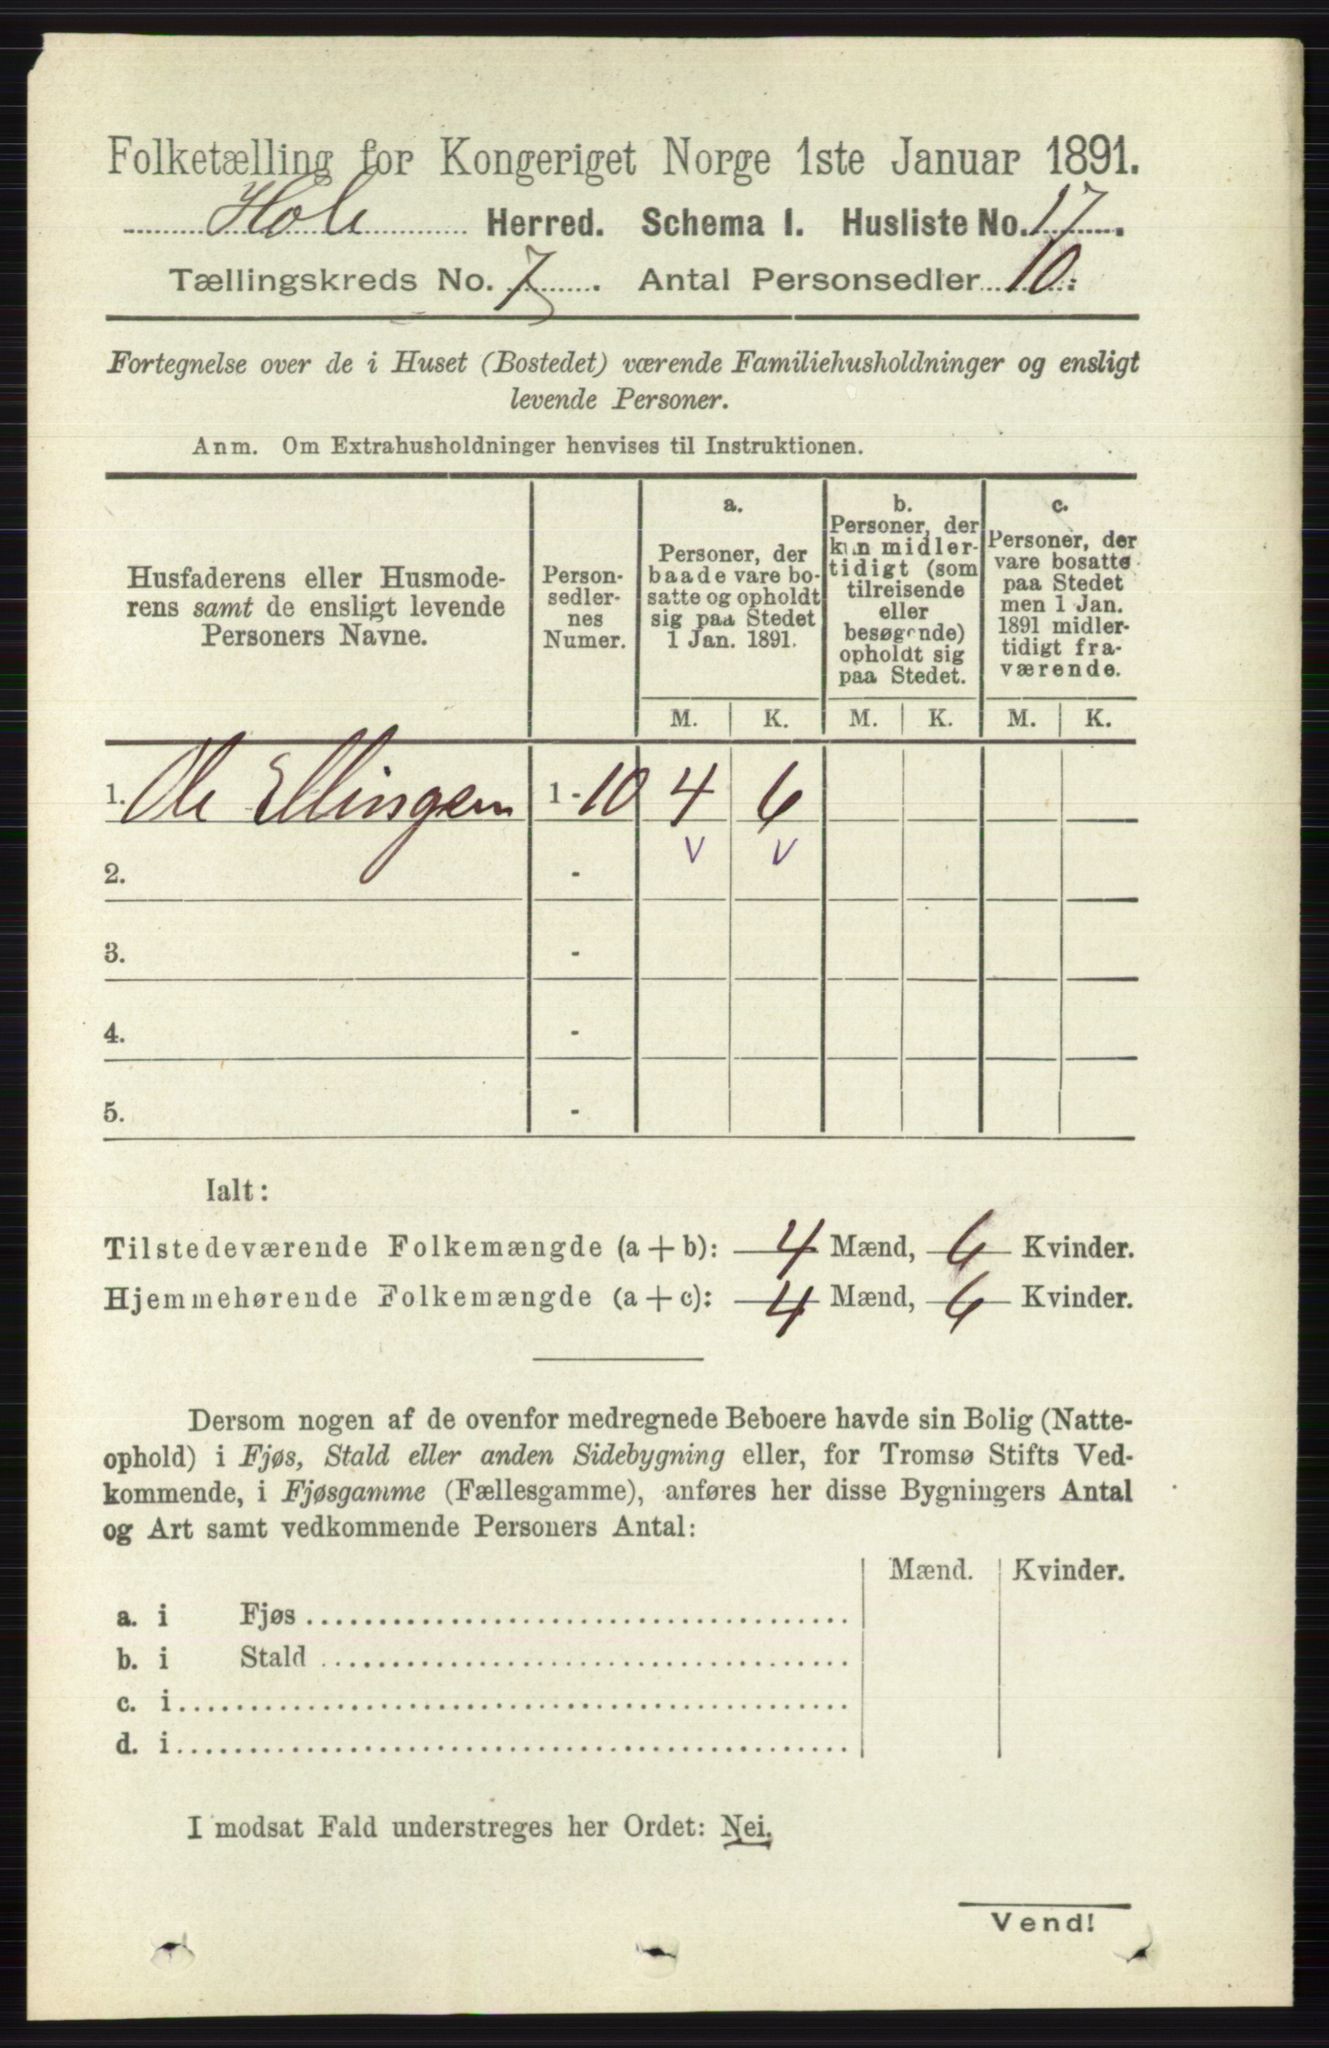 Folketælling for Kongeriget Norge 1ste Januar 1891.
Hole Herred. Schema I. Husliste No. 17.
Tællingskreds No. 7. Antal Personsedler 10.
Fortegnelse over de i Huset (Bostedet) værende Familiehusholdninger og ensligt
levende Personer.
Anm. Om Extrahusholdninger henvises til Instruktionen.
Husfaderens eller Husmode-
rens samt de ensligt levende
Personers Navne.
Person-
sedler-
nes
Numer.
a.
Personer, der
baade vare bo-
satte og opholdt
sig paa Stedet
1 Jan. 1891.
b.
Personer, der
kun midler-
tidigt (som
tilreisende
eller
besøgende)
opholdt sig
paa Stedet.
c.
Personer, der
vare bosatte
paa Stedet
men 1 Jan.
1891 midler-
tidigt fra-
værende.
M. K. M. K. M. K.
1. Ole Ellingsen 1 - 10 4 6
v v
2. -
3. -
4. -
5. -
Ialt:
Tilstedeværende Folkemængde (a + b): 4 Mænd, 6 Kvinder.
Hjemmehørende Folkemængde (a + c): 4 Mænd, 6 Kvinder.
Dersom nogen af de ovenfor medregnede Beboere havde sin Bolig (Natte-
ophold) i Fjøs, Stald eller anden Sidebygning eller, for Tromsø Stifts Ved-
kommende, i Fjøsgamme (Fællesgamme), anføres her disse Bygningers Antal
og Art samt vedkommende Personers Antal:
Mænd. Kvinder.
a. i Fjøs
b. i Stald
c. i
d. i
I modsat Fald understreges her Ordet: Nei.
Vend!